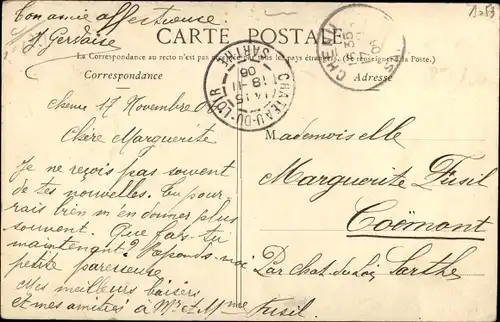 Ton amie affectueuse
J. Gervaise
CARTE POSTALE
La Correspondance au recto n'est pas
tous les pays étrangers. (Se renseigner à la Poste)
Correspondance
Adresse
CHATEAU-DU-LOIR
SARTHE
14 15
18 - 11
06
Chenu 17 Novembre 06
Chère Marguerite
Je ne reçois pas souvent
de tes nouvelles. Tu pour
rais bien m'en donner plus
souvent. Que fais-tu
maintenant? Réponds-moi
petite paresseuse
Mes meilleurs baisers
et mes amitiés à Mr et Mme
Fusil.
Mademoiselle
Marguerite Fusil
Coëmont
Par Chat.-du-Loir Sarthe